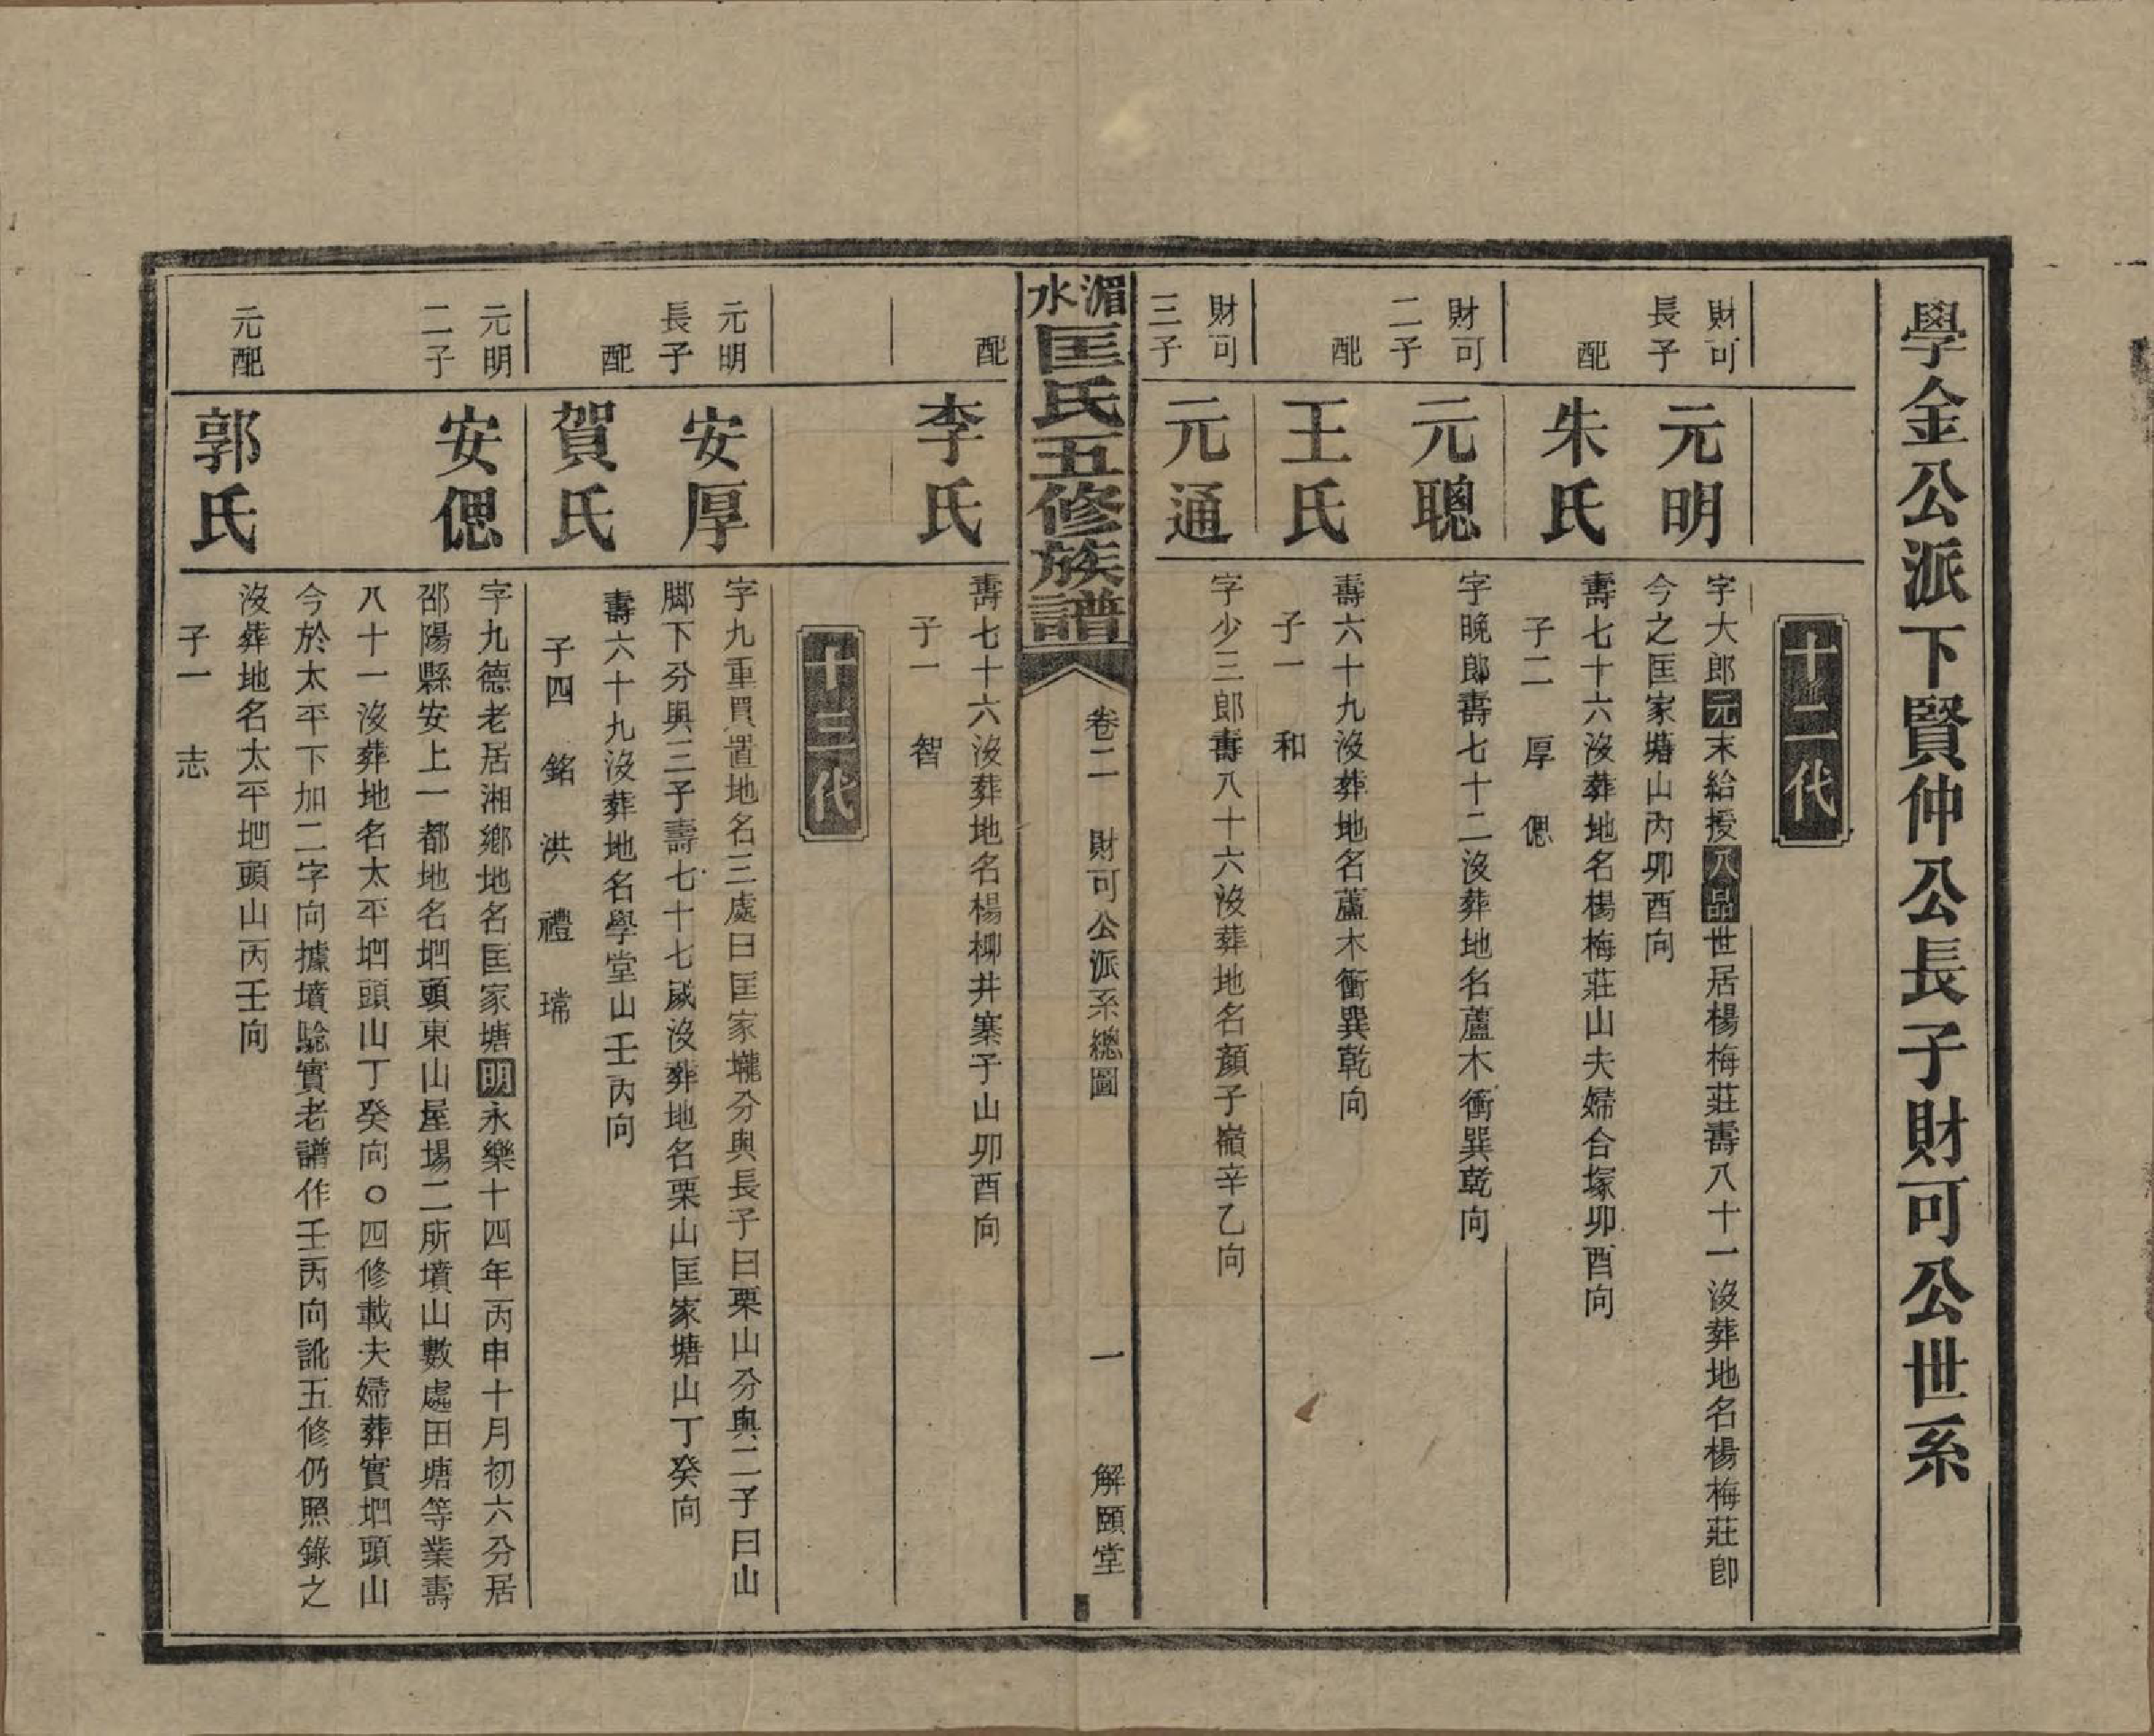 學金公派下賢仲公長子財可公世系
十二代
財可
長子
元明
字大郎元末給授八品世居楊梅莊壽八十一沒葬地名楊梅莊即
今之匡家塘山內卯酉向
配
朱氏
壽七十六沒葬地名楊梅莊山夫婦合塚卯酉向
子二 厚 偲
財可
二子
元聰
字晚郎壽七十二沒葬地名蘆木衝巽乾向
配
王氏
壽六十九沒葬地名蘆木衝巽乾向
子一 和
財可
三子
元通
字少三郎壽八十六沒葬地名顏子嶺辛乙向
湄水匡氏五修族譜
卷二 財可公派系總圖 一 解頤堂
配
李氏
壽七十六沒葬地名楊柳井寨子山卯酉向
子一 智
十三代
元明
長子
安厚
字九重買置地名三處曰匡家壠分與長子曰栗山分與二子曰山
脚下分與三子壽七十七歲沒葬地名栗山匡家塘山丁癸向
配
賀氏
壽六十九沒葬地名學堂山壬丙向
子四 銘 洪 禮 瑺
元明
二子
安偲
字九德老居湘鄉地名匡家塘明永樂十四年丙申十月初六分居
邵陽縣安上一都地名垇頭東山屋場二所墳山數處田塘等業壽
八十一沒葬地名太平垇頭山丁癸向○四修載夫婦葬實垇頭山
今於太平下加二字向據墳騐實老譜作壬丙向訛五修仍照錄之
元配
郭氏
沒葬地名太平垇頭山丙壬向
子一 志